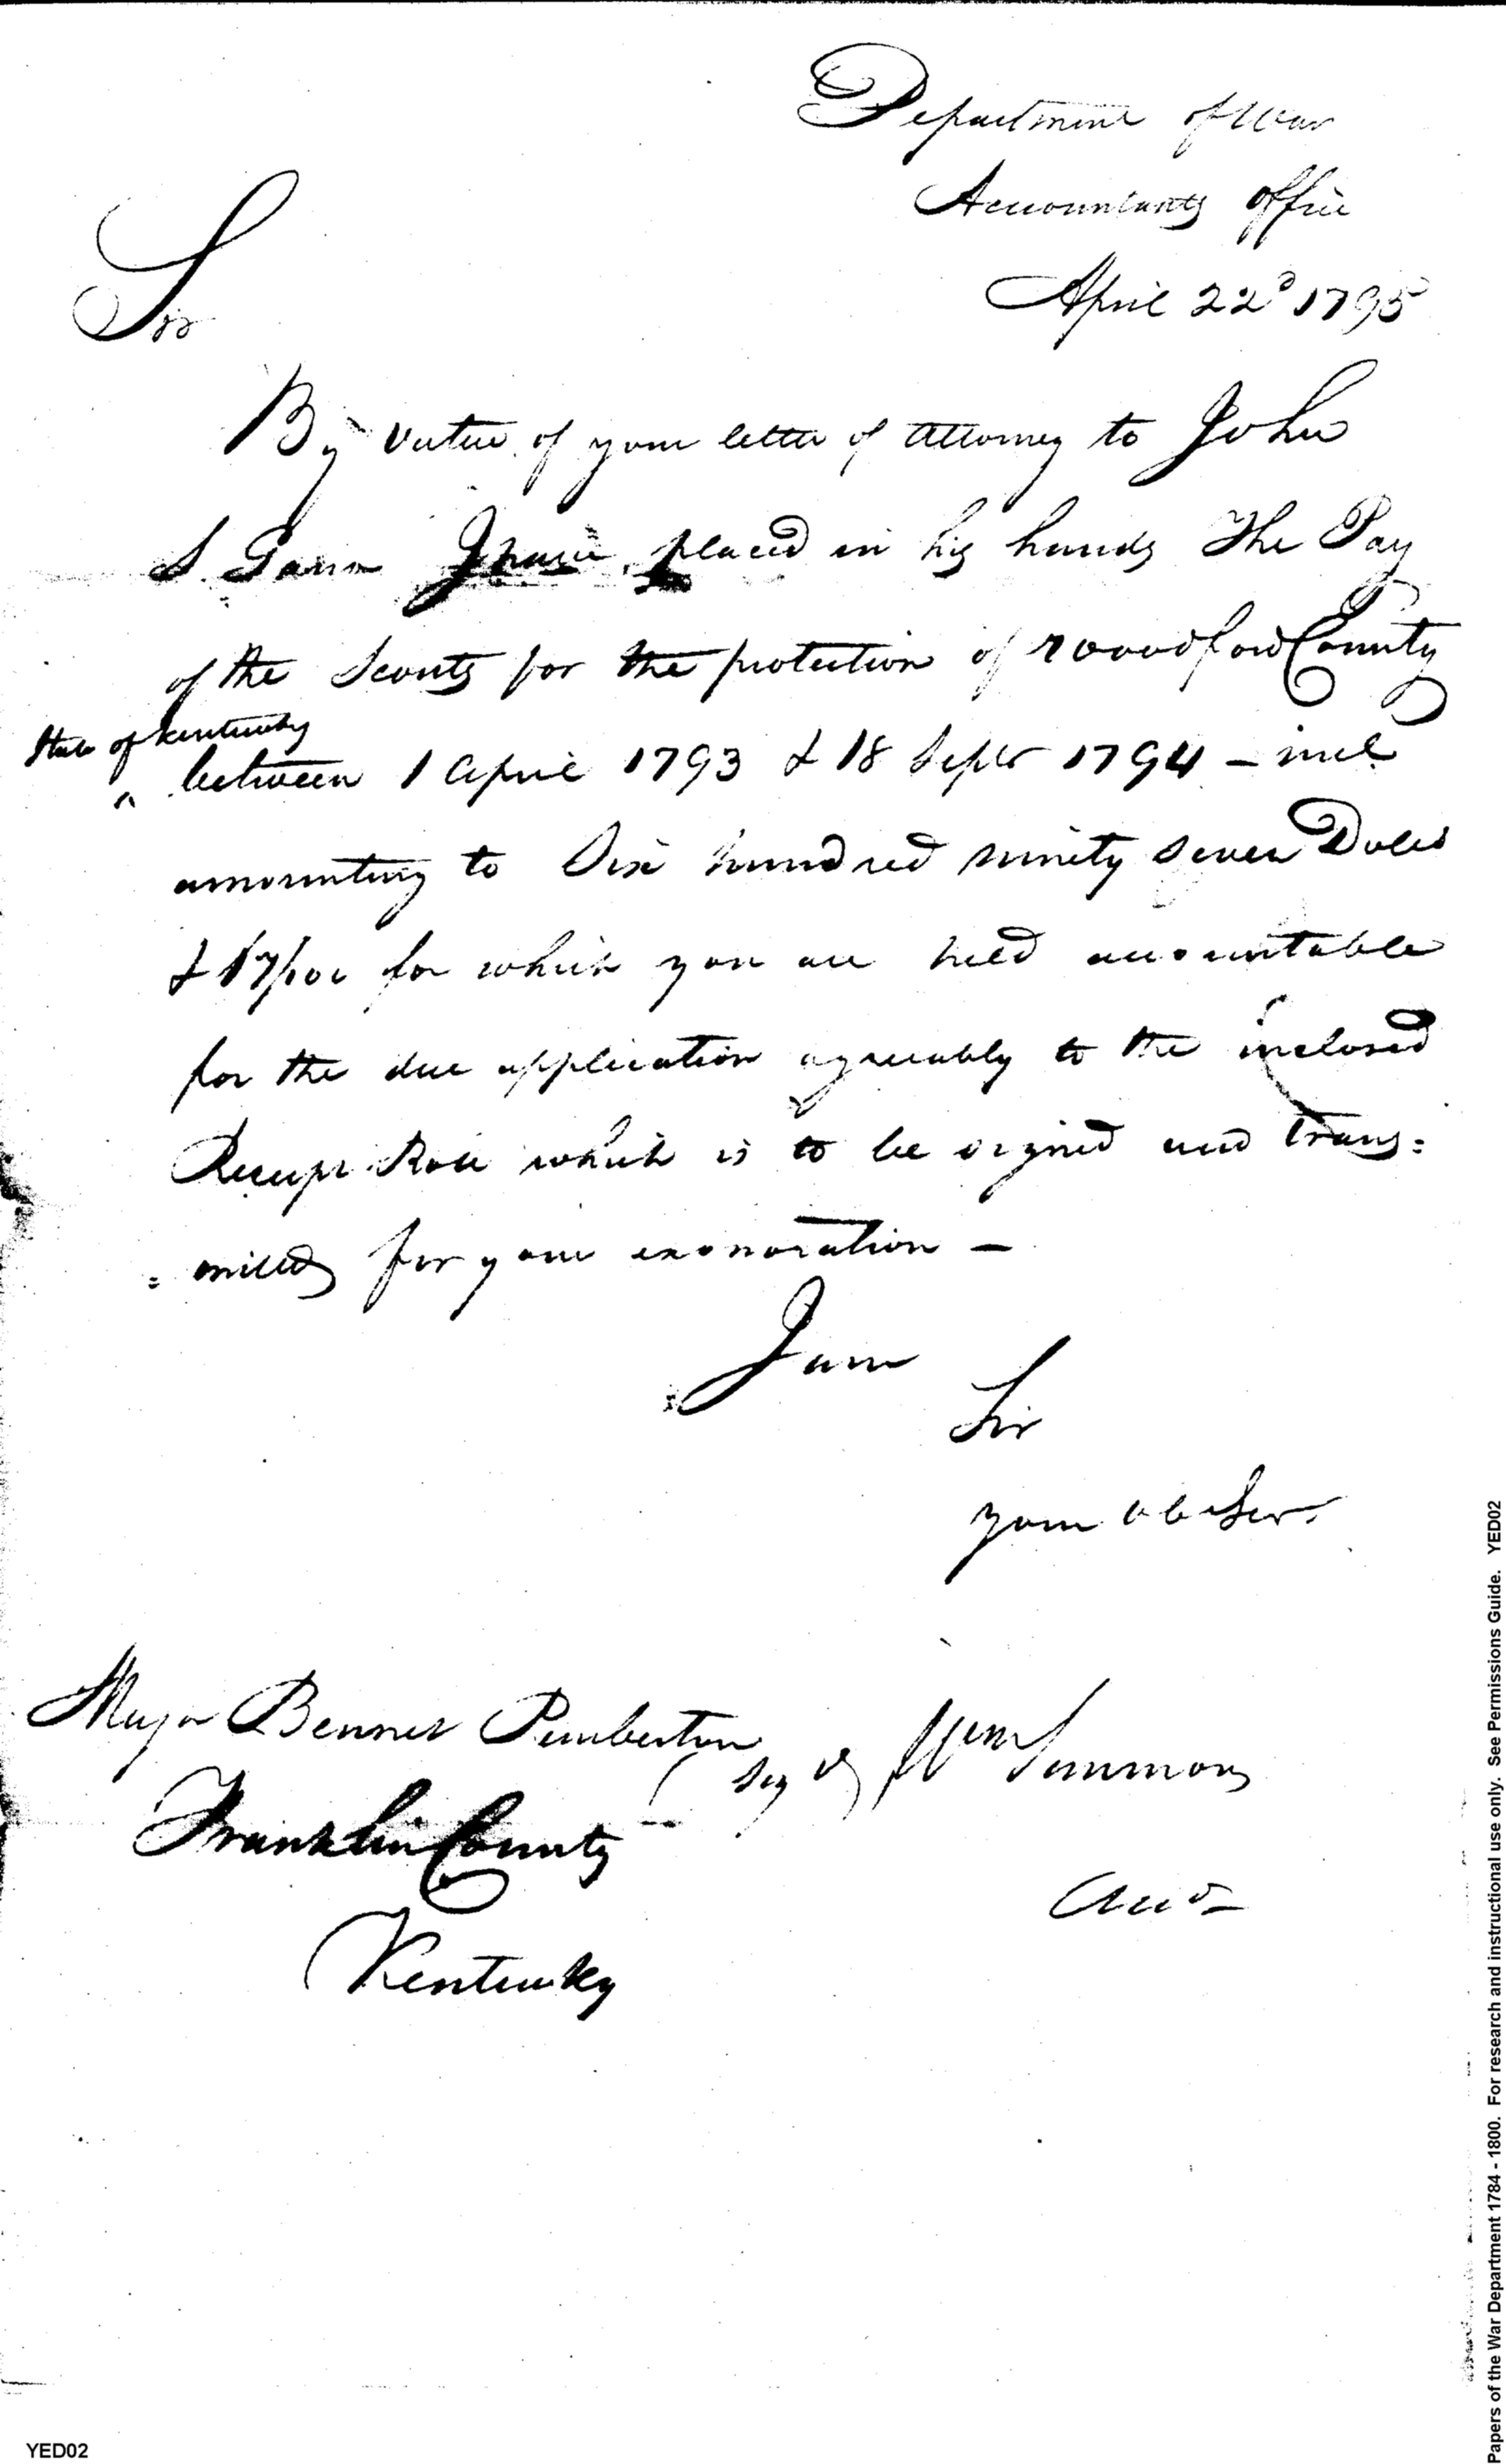 Department of War
Accountants Office
April 22d 1795
Sir
By virtue of your letter of attorney to John
S. Gano I have placed in his hands The Pay
of the Scouts for the protection of Woodford County
State of Kentucky
between 1 April 1793 & 18 Septr 1794 – incl
amounting to Six hundred ninety seven Dolls
& 17/100 for which you are held accountable
for the due application agreeably to the inclosed
Receipt Roll which is to be signed and trans=
=mitted for your exonoration –
I am
Sir
your Ob Ser.
Major Bennet Pemberton
(Sig d) Wm Simmons
Franklin County
Acct
Kentucky
YED02
Papers of the War Department 1784 - 1800. For research and instructional use only. See Permissions Guide. YED02